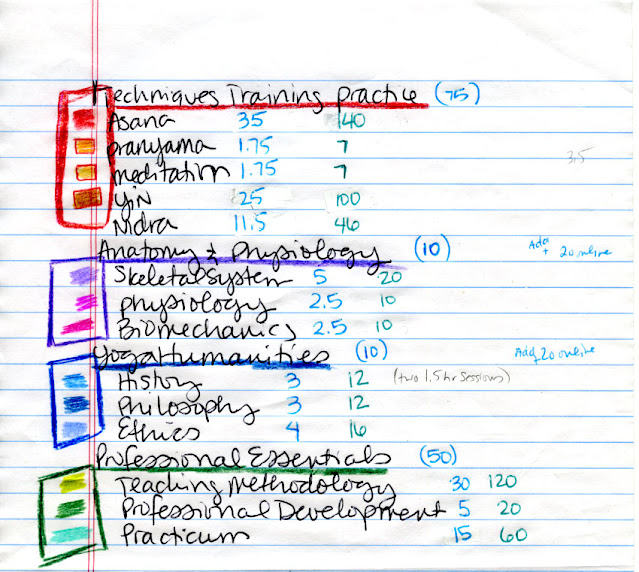 Techniques Training Practice (75)
Asana 35 140
pranyama 1.75 7
meditation 1.75 7
3.5
Yin 25 100
Nidra 11.5 46
Anatomy & Physiology (10) Add + 20 online
Skeletal System 5 20
physiology 2.5 10
Biomechanics 2.5 10
Yoga Humanities (10) Add 20 online
History 3 12 (two 1.5 hr Sessions)
Philosophy 3 12
Ethics 4 16
Professional Essentials (50)
Teaching Methodology 30 120
Professional Development 5 20
Practicum 15 60